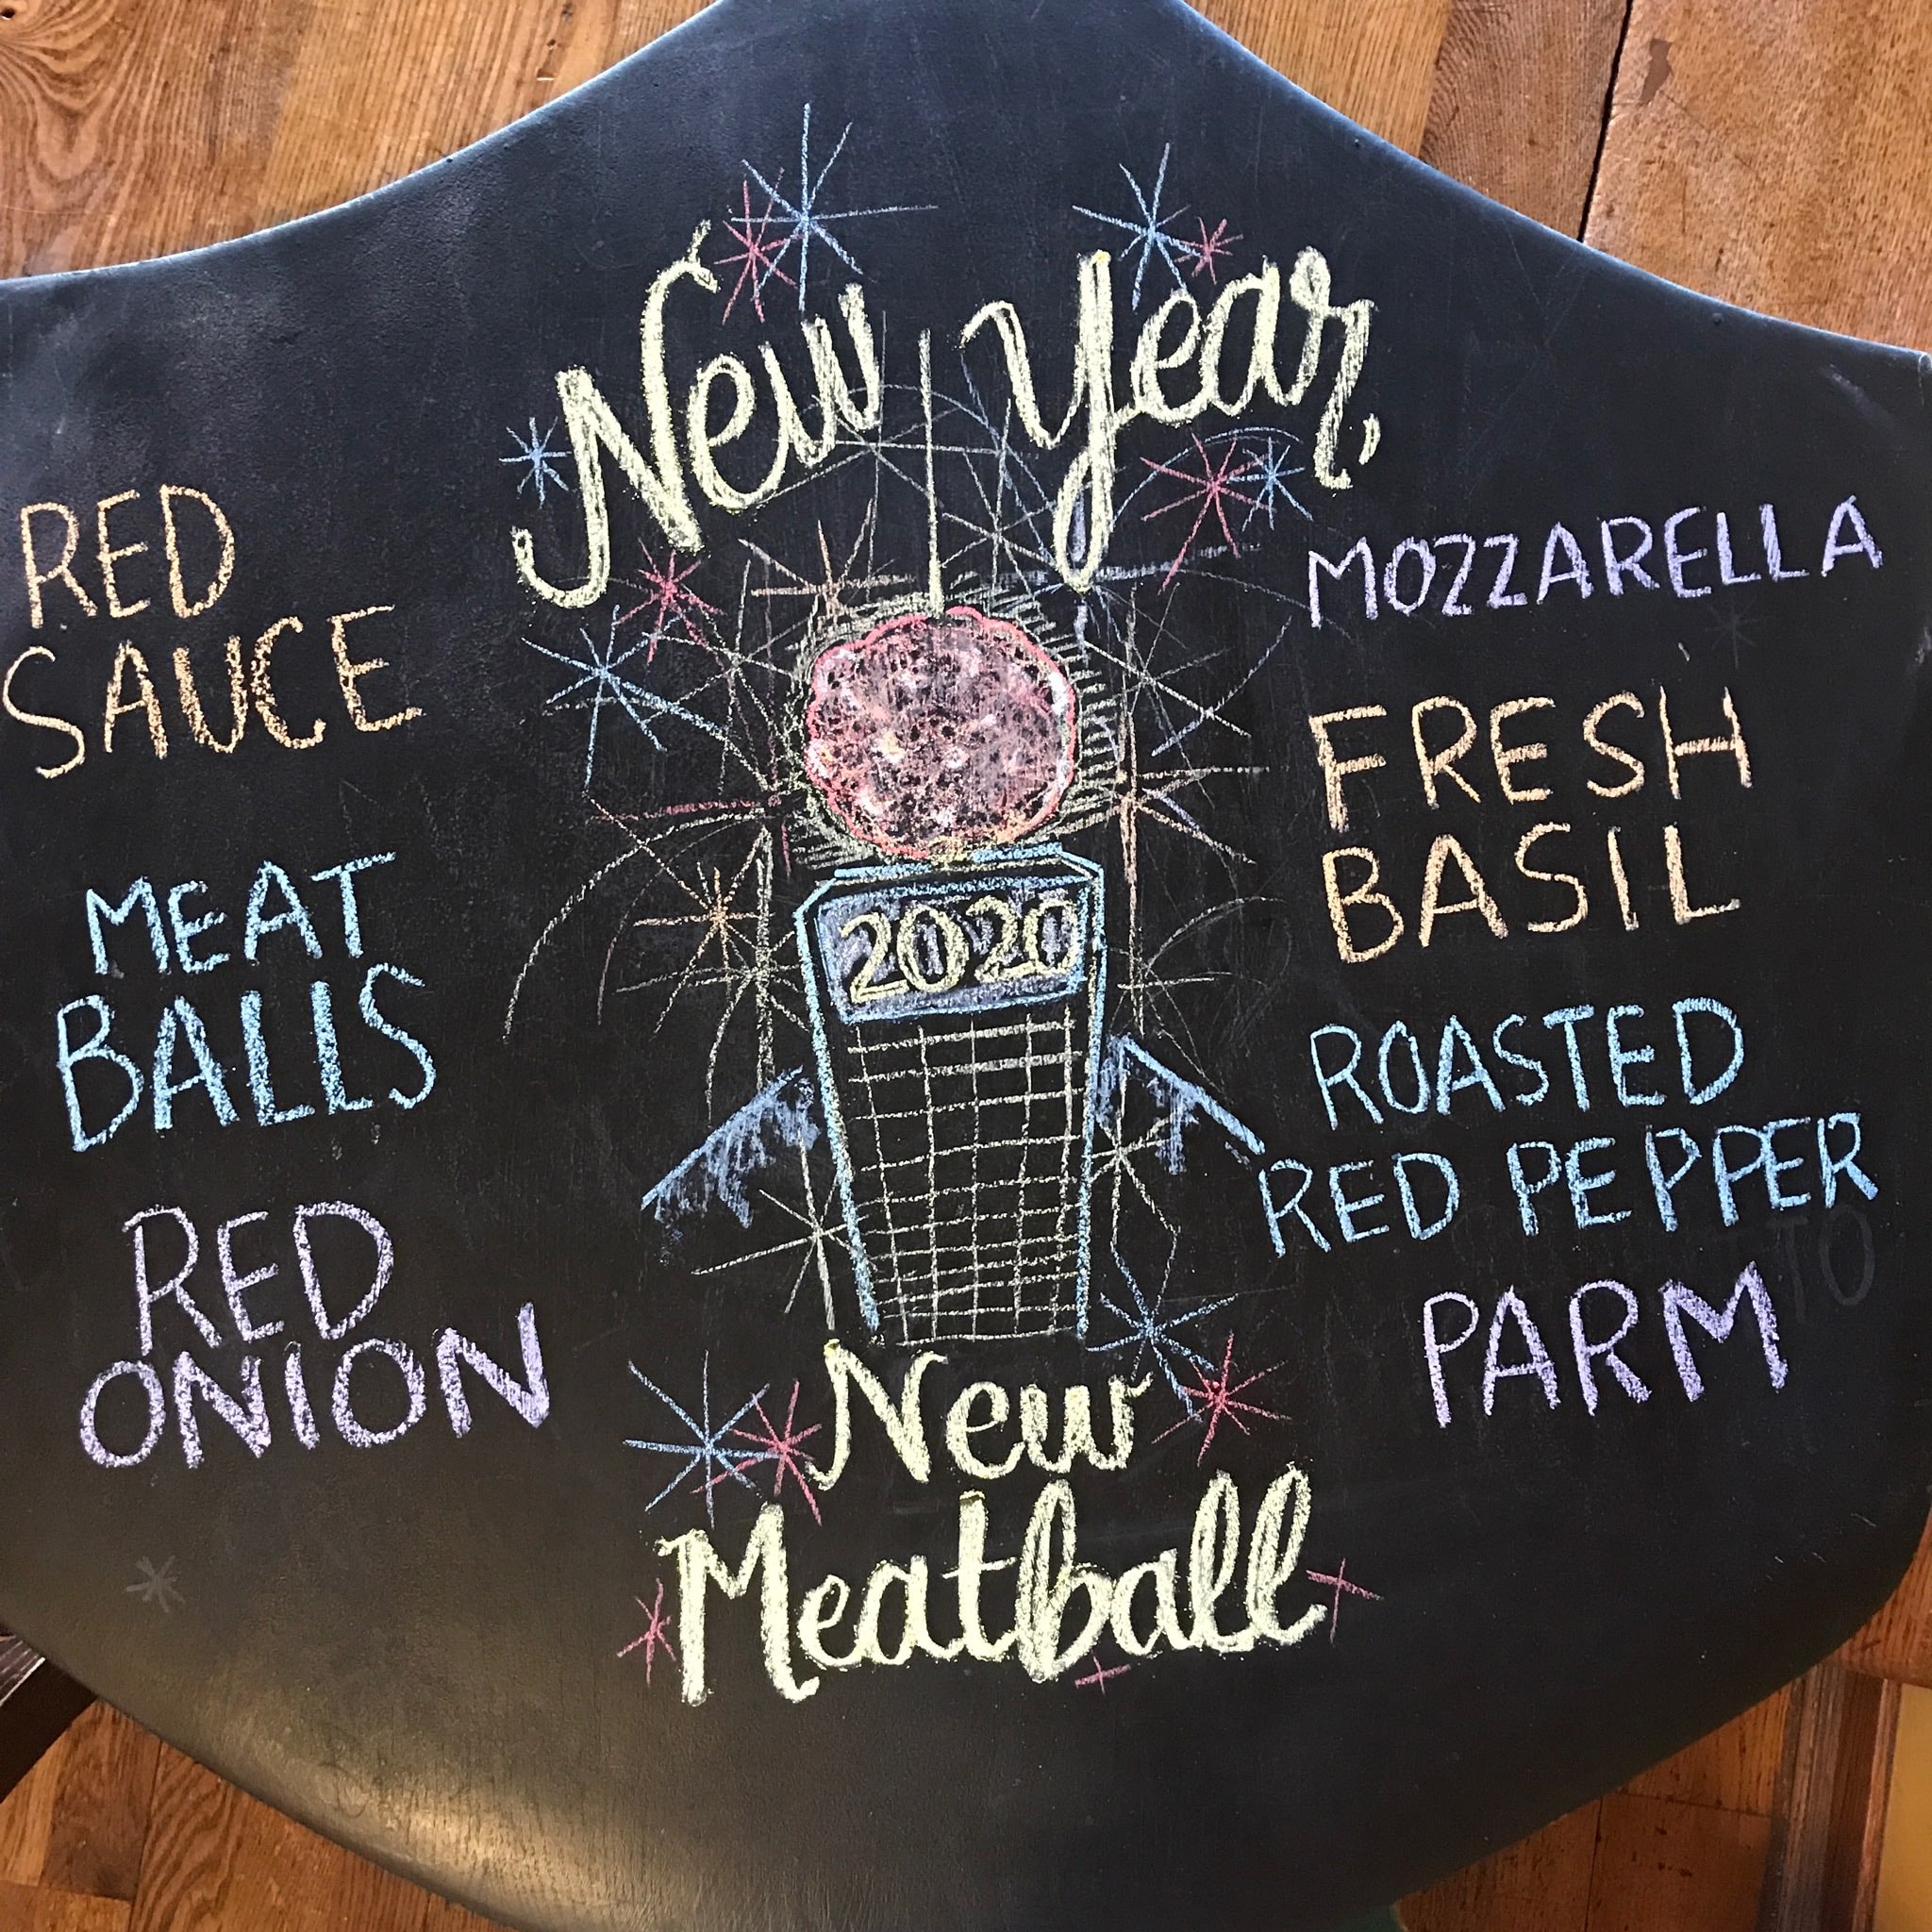 New Year,
RED
SAUCE
MEAT
BALLS
RED
ONION
MOZZARELLA
FRESH
BASIL
ROASTED
RED PEPPER
PARM
TO
2020
New
Meatball